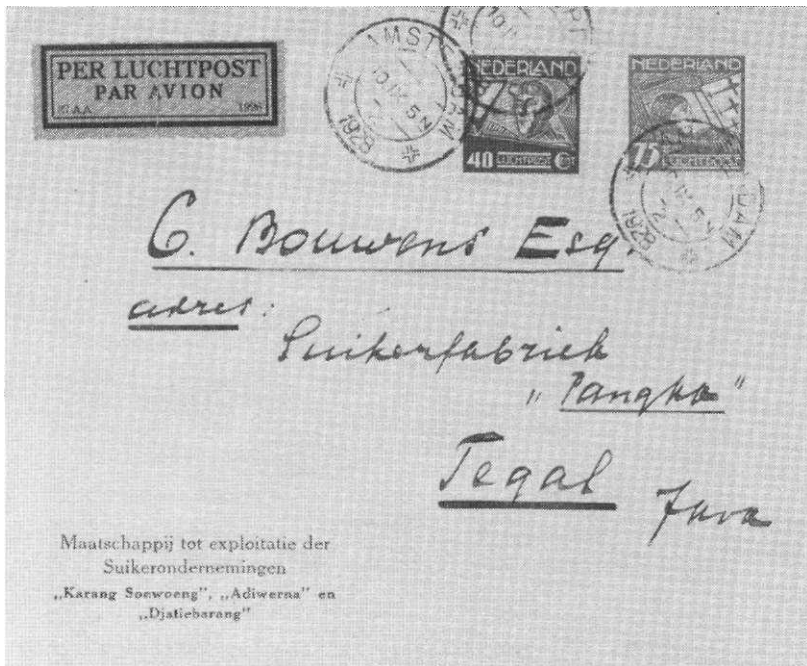 PER LUCHTPOST
PAR AVION
1928
AMSTERDAM
1928
NEDERLAND
40 LUCHTPOST CENT
NEDERLAND
75 LUCHTPOST
AMSTERDAM
1928
C. Bouwens Esq.
adres:
Suikerfabriek
„Pangka"
Tegal
Java
Maatschappij tot exploitatie der
Suikerondernemingen
„Karang Soewoeng", „Adiwerna" en
„Djatiebarang"